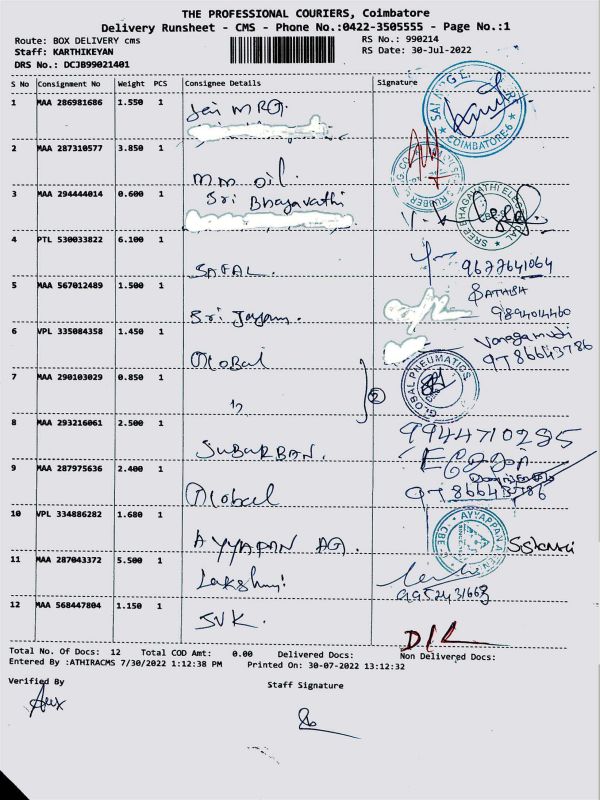 THE PROFESSIONAL COURIERS, Coimbatore
Delivery Runsheet - CMS - Phone No.:0422-3505555 - Page No.:1
Route: BOX DELIVERY cms
RS No.: 990214
Staff: KARTHIKEYAN
RS Date: 30-Jul-2022
DRS No.: DCJB99021401
S No Consignment No Weight PCS Consignee Details Signature
1 MAA 286981686 1.550 1
Jai MRG.
COIMBATORE-6
2 MAA 287310577 3.850 1
MM oil.
3 MAA 294444014 0.600 1
Sri Bhagavathi
4 PTL 530033822 6.100 1
SAFAL. 9677641064
5 MAA 567012489 1.500 1
SATHISH
Sri Jayam. 9894014460
6 VPL 335084358 1.450 1
Global 9786643786
7 MAA 290103029 0.850 1
GLOBAL PNEUMATICS
11 2
8 MAA 293216061 2.500 1
SUBURBAN. 9944710285
9 MAA 287975636 2.400 1
Global 9786643786
10 VPL 334886282 1.680 1
AYYAPAN AG.
11 MAA 287043372 5.500 1
Lakshmi 9952431663
12 MAA 568447804 1.150 1
SVK. D/L
Total No. Of Docs: 12 Total COD Amt: 0.00 Delivered Docs: Non Delivered Docs:
Entered By :ATHIRACMS 7/30/2022 1:12:38 PM Printed On: 30-07-2022 13:12:32
Verified By Staff Signature